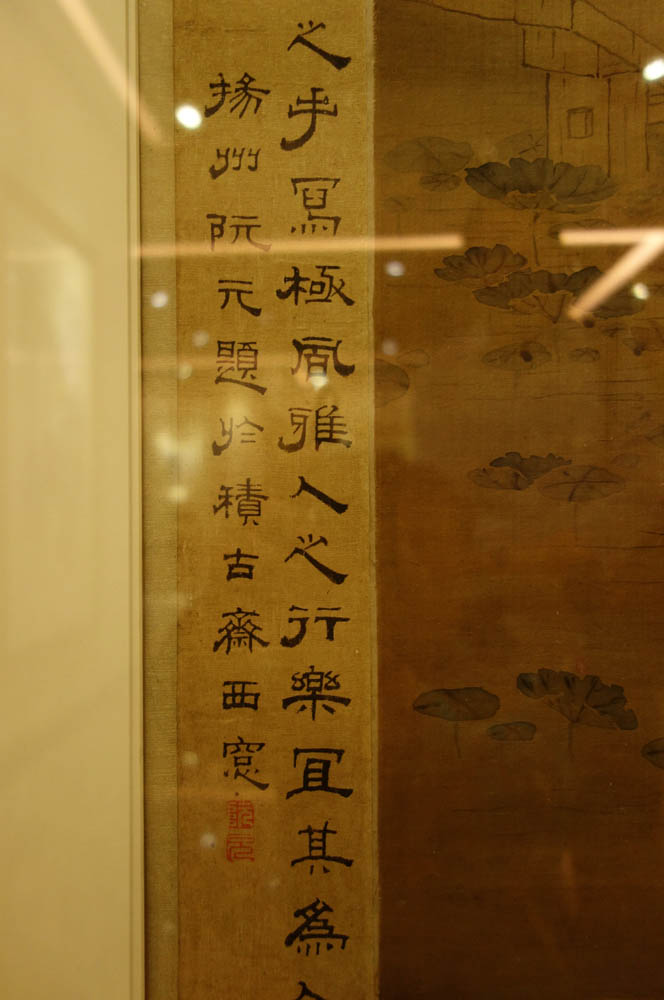 之手寫極風雅人之行樂冝其為
揚州阮元題於積古齋西窓